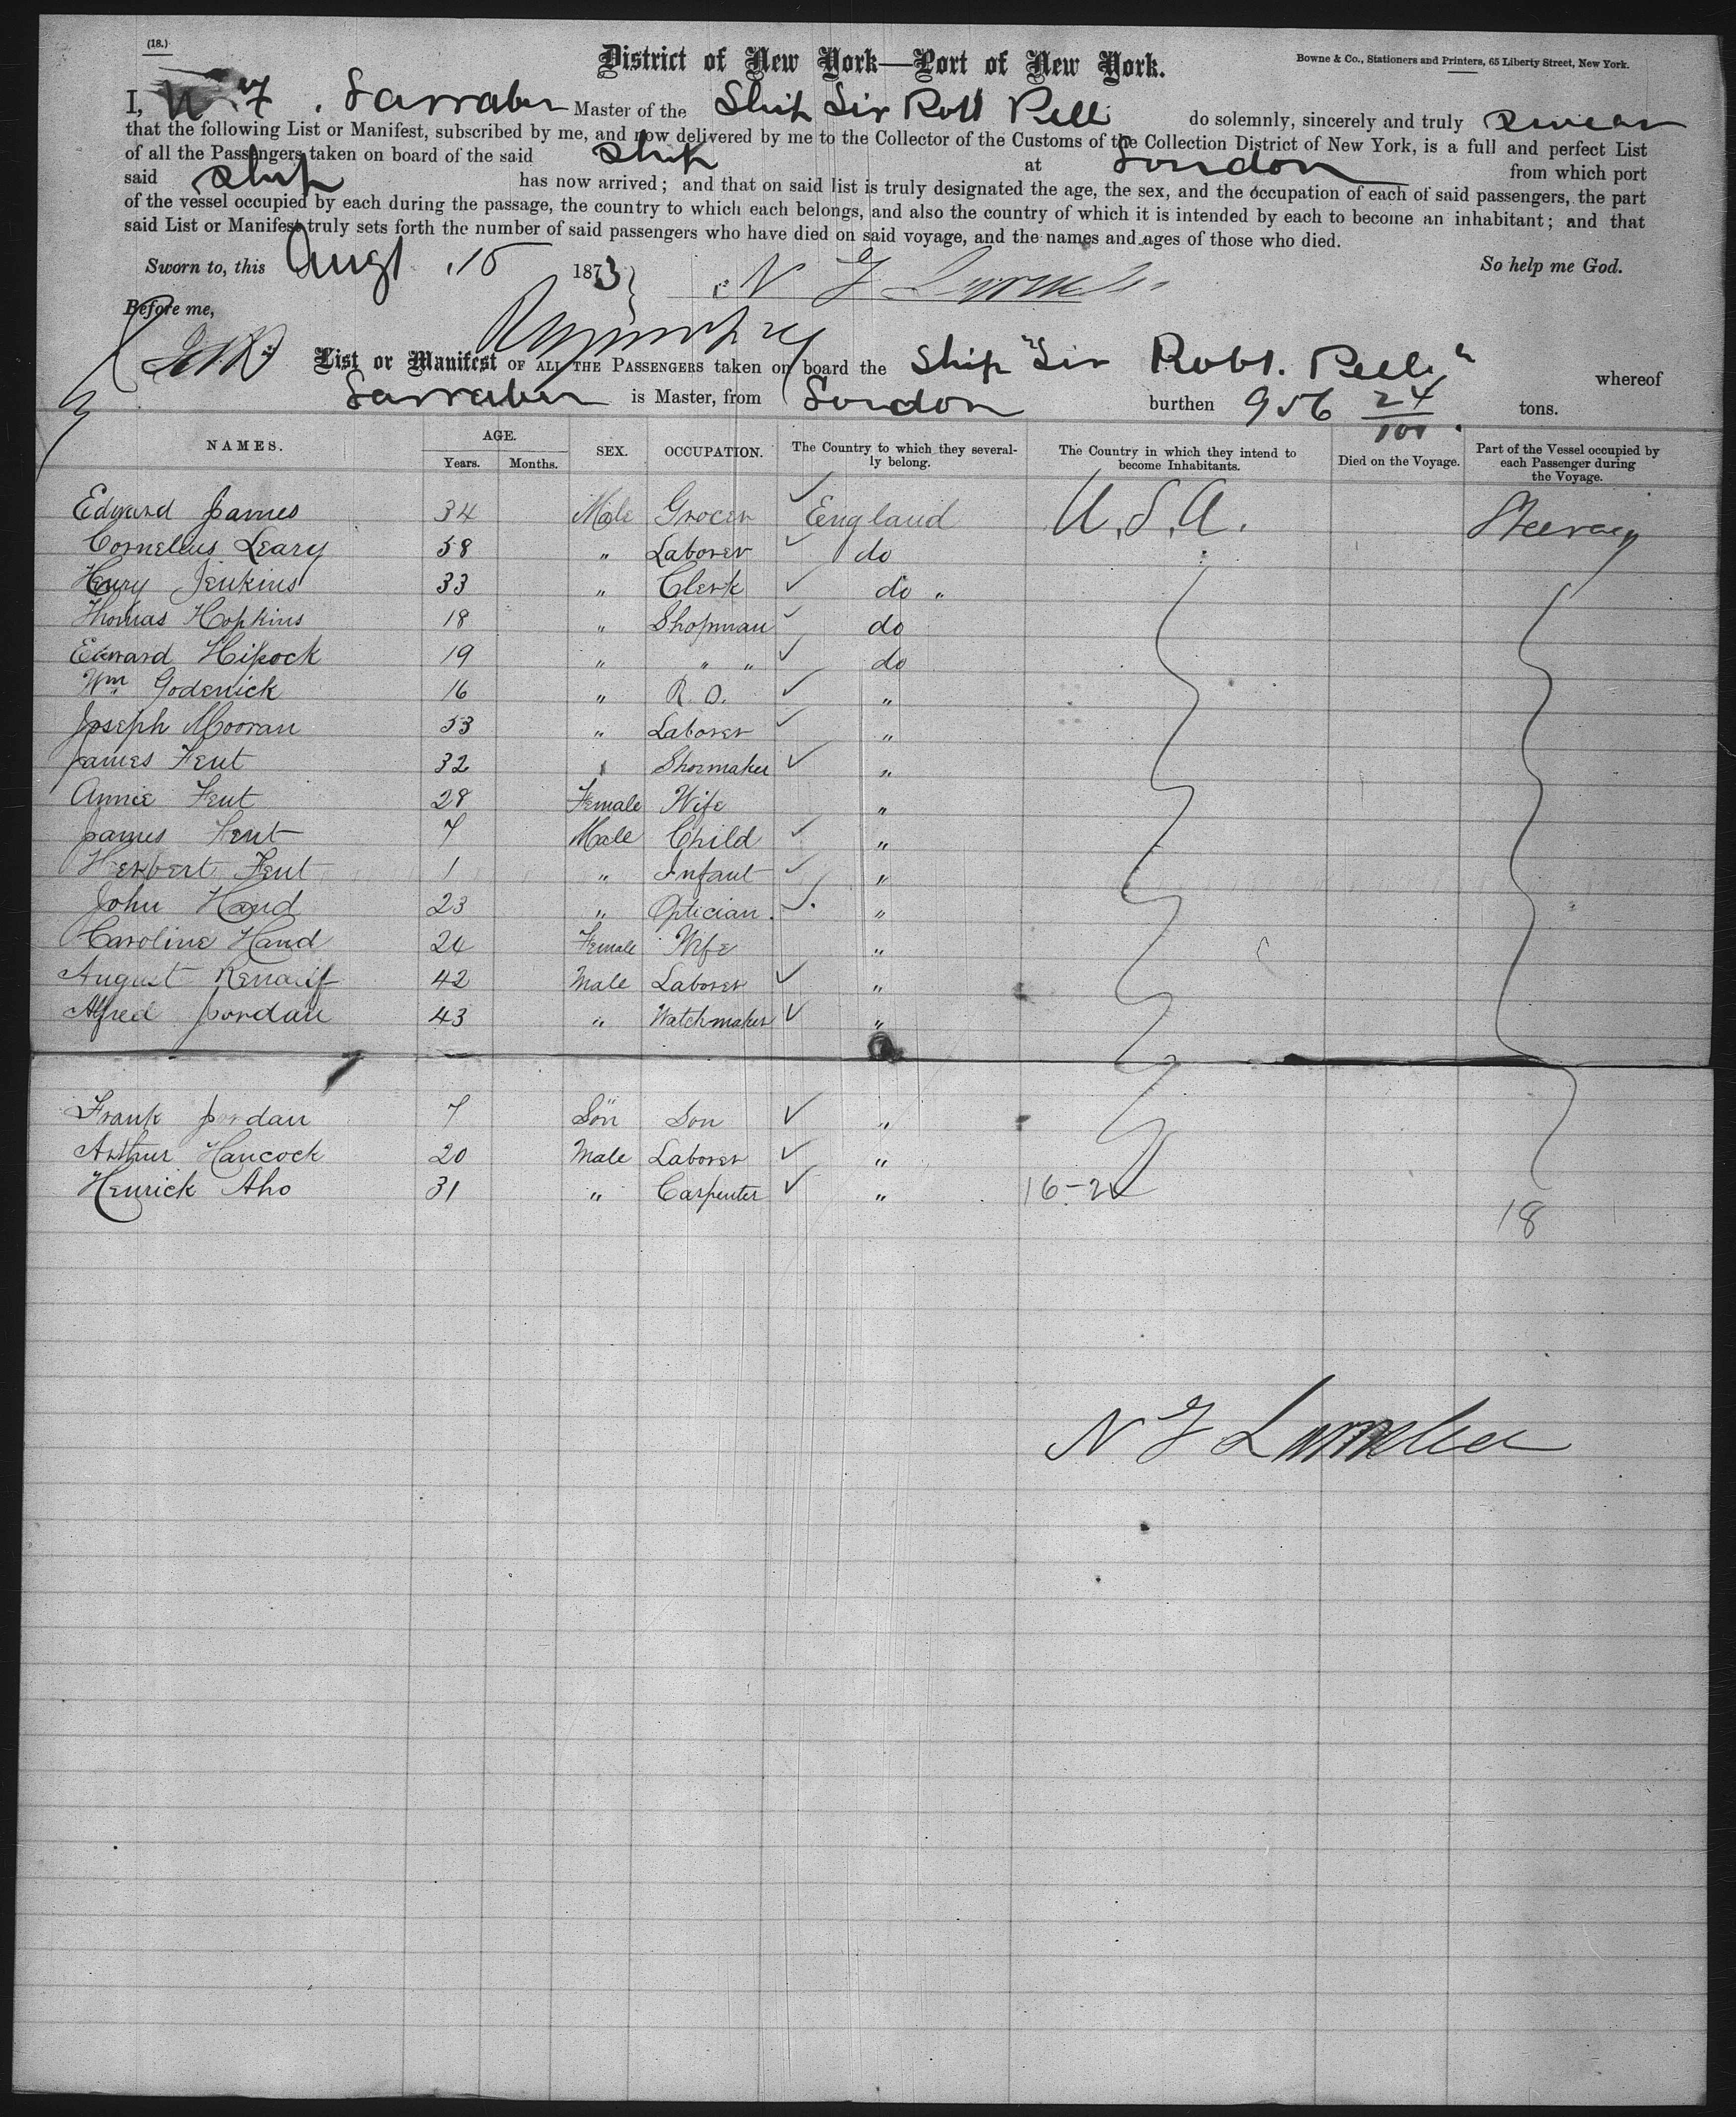 (18.)
District of New York—Port of New York.
Bowne & Co., Stationers and Printers, 65 Liberty Street, New York.
I, Larraber Master of the Ship Sir Robt Pell do solemnly, sincerely and truly swear
that the following List or Manifest, subscribed by me, and now delivered by me to the Collector of the Customs of the Collection District of New York, is a full and perfect List
of all the Passengers taken on board of the said Ship at London from which port
said Ship has now arrived; and that on said list is truly designated the age, the sex, and the occupation of each of said passengers, the part
of the vessel occupied by each during the passage, the country to which each belongs, and also the country of which it is intended by each to become an inhabitant; and that
said List or Manifest truly sets forth the number of said passengers who have died on said voyage, and the names and ages of those who died.
Sworn to, this Augt 15 1873 So help me God.
Before me,
List or Manifest OF ALL THE PASSENGERS taken on board the Ship "Sir Robt. Pelle" whereof
Larraber is Master, from London burthen 956 24/100 tons.
NAMES. AGE. Years. Months. SEX. OCCUPATION. The Country to which they severally belong. The Country in which they intend to become Inhabitants. Died on the Voyage. Part of the Vessel occupied by each Passenger during the Voyage.
Edward James 34 Male Grocer ✓ England U.S.A. Steerage
Cornelius Leary 58 " Laborer ✓ do
Henry Jenkins 33 " Clerk ✓ do "
Thomas Hopkins 18 " Shopman ✓ do
Edward Hipock 19 " " " ✓ do
Wm Godenick 16 " R. O. ✓ "
Joseph Mooran 53 " Laborer ✓ "
James Fent 32 Shoemaker ✓ "
Annie Fent 28 Female Wife "
James Fent 7 Male Child ✓ "
Herbert Fent 1 " Infant ✓ "
John Hand 23 " Optician. ✓ "
Caroline Hand 24 Female Wife "
August 42 Male Laborer ✓ "
Alfred Jordan 43 " Watchmaker ✓ "
Frank Jordan 7 Son Son ✓ "
Arthur Hancock 20 Male Laborer ✓ "
Henrick Aho 31 " Carpenter ✓ " 16-2
18